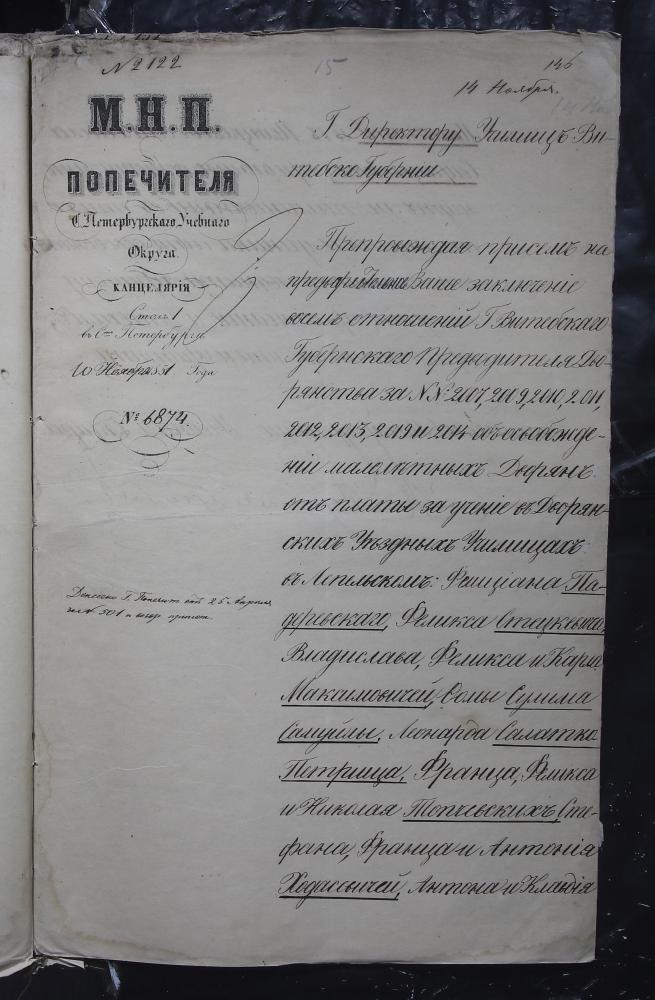 № 2122
15
146
14 Ноября.
М.Н.П.
ПОПЕЧИТЕЛЯ
С. Петербургскаго Учебнаго
Округа.
КАНЦЕЛЯРІЯ
Столъ 1
въ С. Петербургѣ
10 Ноября 51 Года
№ 6874.
Г Директору Училищъ Ви-
тебско Губерніи
Препровождая присемъ на
Ваше заключеніе
восемь отношеній Г. Витебскаго
Губернскаго Предводителя Дво-
рянства за №№ 2007, 2009, 2010, 2011,
2012, 2013, 2019 и 2014 объ освобожде-
ніи малолѣтныхъ Дворянъ
отъ платы за ученіе въ Дворян-
скихъ Уѣздныхъ Училищахъ:
въ Лепельскомъ: Фелиціана Па-
деревскаго, Феликса Стацкевича,
Владислава, Феликса и Карла
Максимовичей, Сулима
Самуйлы, Леонарда Салатко
Петрища, Франца, Феликса
и Николая Топчевскихъ, Сте-
фана, Франца и Антонія
Ходасевичей, Антона и Клавдія
Донесено Г. Попечит отъ 25 Апрѣля
за № 501